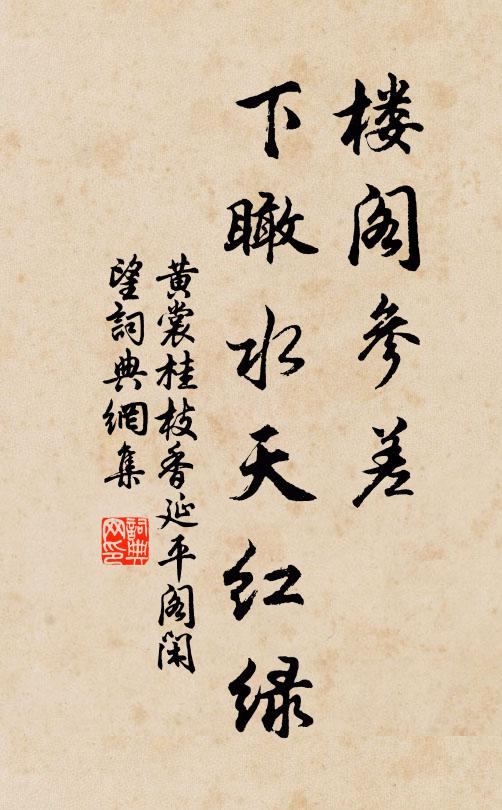 楼阁参差
下瞰水天红绿
黄裳桂枝香延平阁闲
望词典网集
词典网印